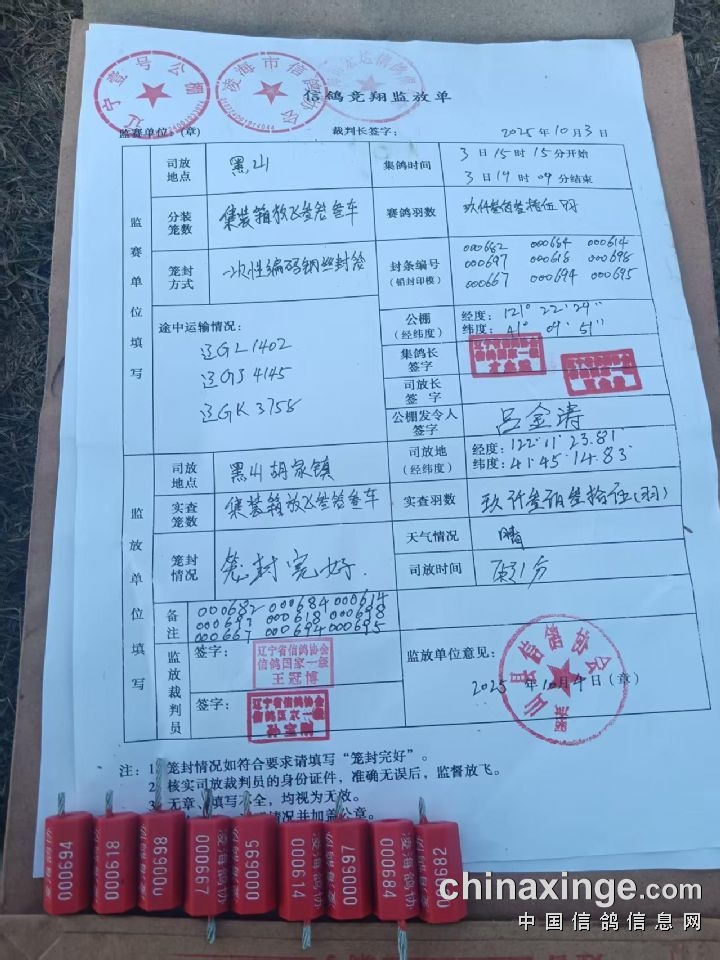 辽宁壹号公棚
凌海市信鸽协会
信鸽竞翔监放单
监赛单位:(章) 裁判长签字: 2025年10月3日
监赛单位填写
司放地点 黑山 集鸽时间 3日15时15分开始
3日19时09分结束
分装笼数 集装箱放飞叁台叁车 赛鸽羽数
笼封方式 一次性编码钢丝封 封条编号(铅封印模) 000682 000684 000614
000697 000618 000698
000667 000694 000695
途中运输情况:
辽GL1402
辽GJ4145
辽GK3758
公棚(经纬度) 经度:121°22′29″
纬度:41°09′51″
集鸽长签字 辽宁省信鸽协会
信鸽国家一级
司放长签字 辽宁省信鸽协会
信鸽国家一级
公棚发令人签字 吕金涛
监放单位填写
司放地点 黑山胡家镇 司放地(经纬度) 经度:122°11′23.81″
纬度:41°45′14.83″
实查笼数 集装箱放飞叁台叁车 实查羽数 玖仟叁佰叁拾伍(羽)
笼封情况 笼封完好. 天气情况 晴
司放时间
备注 000682 000684 000614
000697 000618 000698
000667 000694 000695
监放裁判员 签字: 辽宁省信鸽协会
信鸽国家一级
王冠博
签字: 辽宁省信鸽协会
信鸽国家一级
孙宝刚
监放单位意见:
黑山县信鸽协会
2025年10月4日(章)
注: 1、笼封情况如符合要求请填写“笼封完好”。
2、核实司放裁判员的身份证件,准确无误后,监督放飞。
3、无章、填写不全,均视为无效。
情况并加盖公章。
000694
000618
000698
000667
000695
000614
000697
000684
000682
chinaxinge.com
中国信鸽信息网